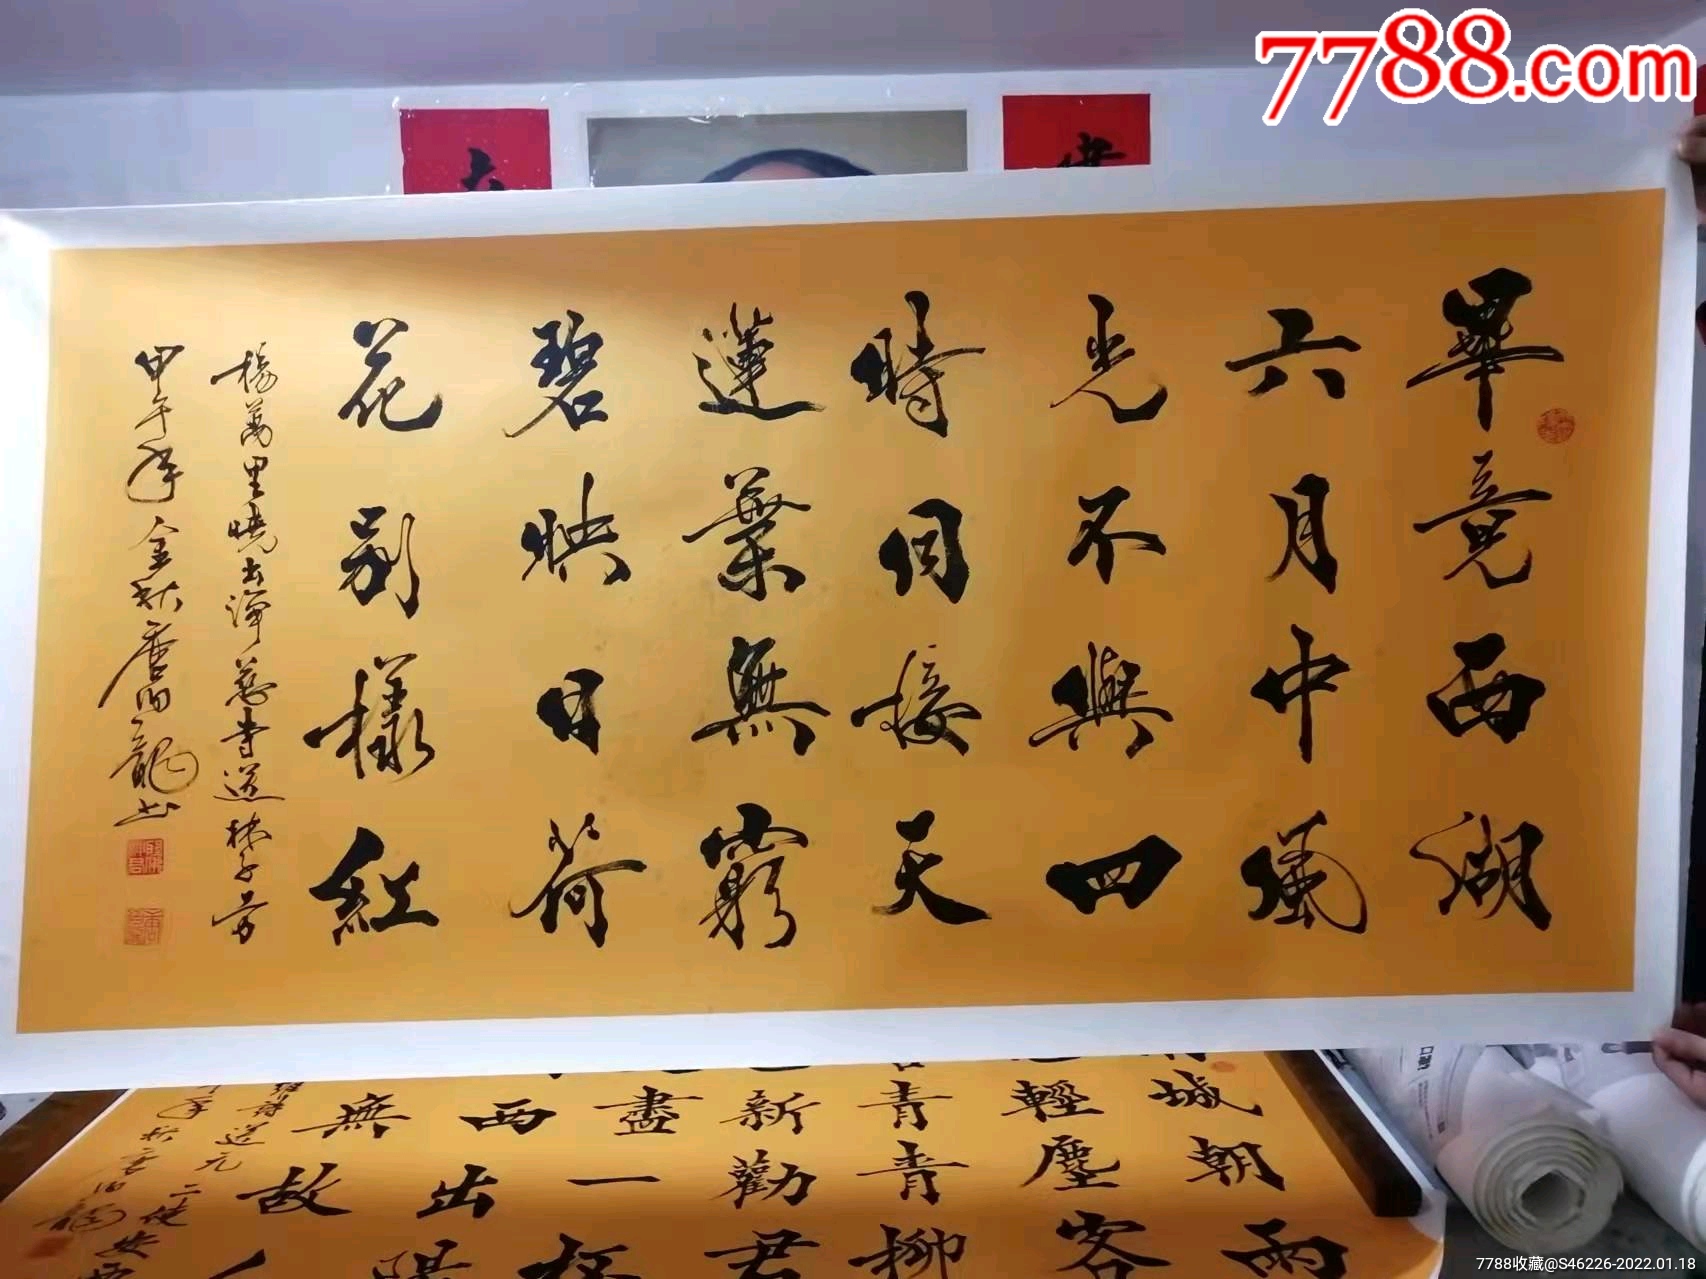 7788.com
畢竟西湖
六月中風
光不與四
時同接天
蓮葉無窮
碧映日荷
花別樣紅
楊萬里曉出淨慈寺送林子方
甲午年金秋唐伯龍书
城朝雨
輕塵客
青青柳
新勸君
盡一杯
西出陽
無故
詩送元二使安西
年秋唐伯龍
7788收藏@S46226-2022.01.18